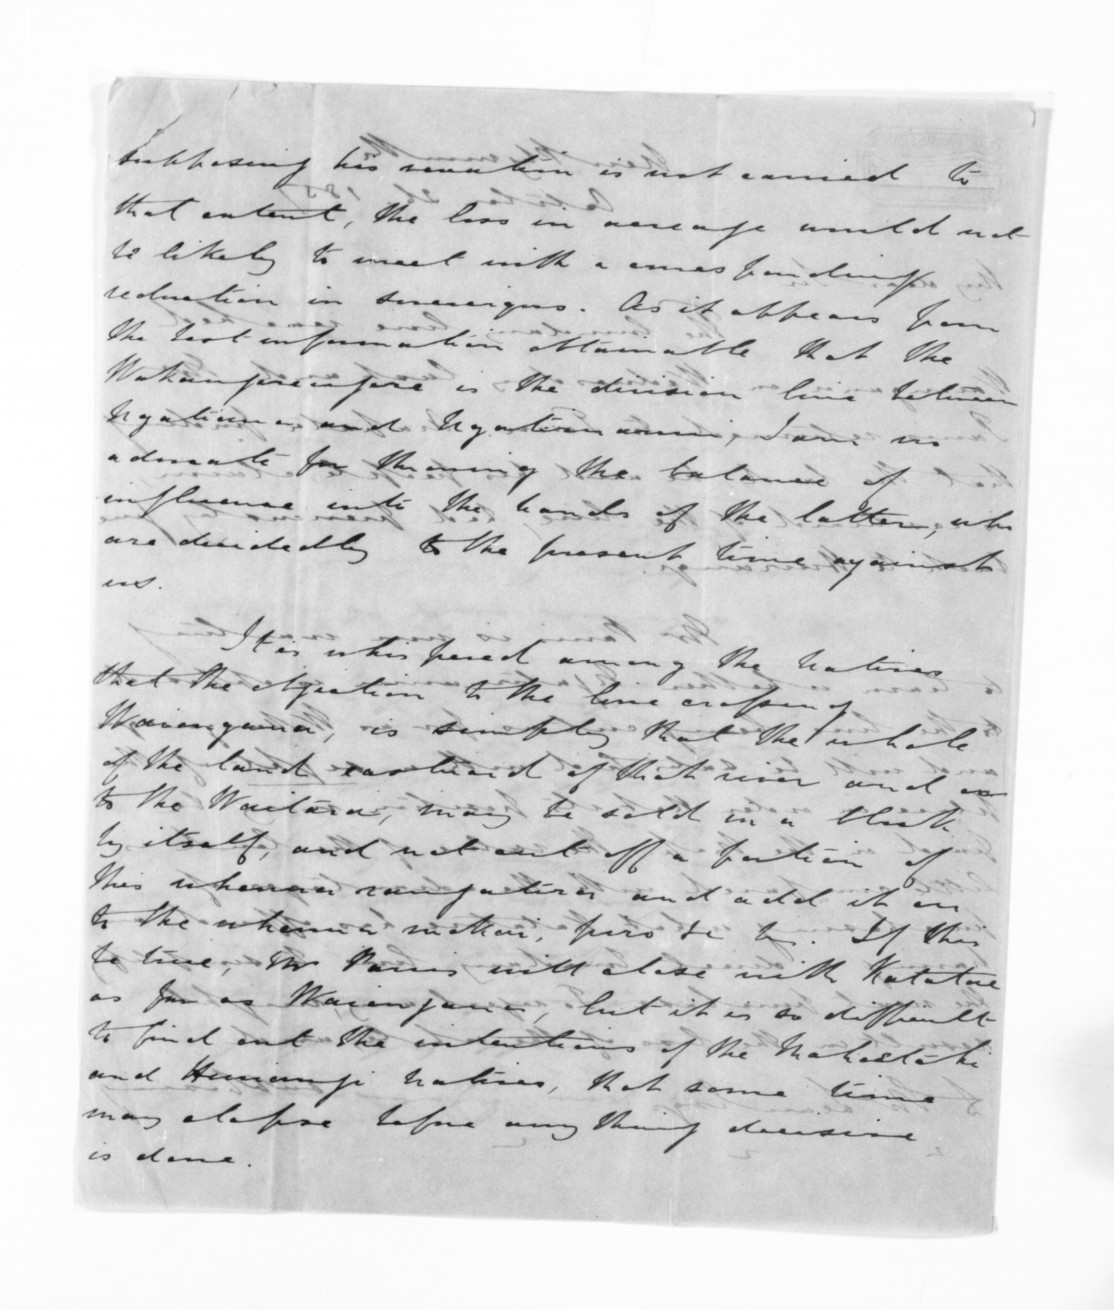 supposing his vexation is not carried to
that extent, the loss in acreage would not
be likely to meet with a corresponding
reduction in sovereigns. As it appears from
the best information obtainable that the
is the division line between
Ngatiawa and Ngatimaru, I am no
advocate for throwing the balance of
influence into the hands of the latter, who
are decidedly to the present time against
us.
It is whispered among the natives
that the objection to the line crossing
Waiongana, is simply that the whole
of the land eastward of that river and on
to the Waitara, may be sold in a block
by itself, and not cut off a portion of
this whenua rangatira and add it on
to the whenua If this
be true, Mr Parris will close with Katatore
as far as Waiongana, but it is so difficult
to find out the intentions of the
and Huirangi natives, that some time
may elapse before any thing decisive
is done.